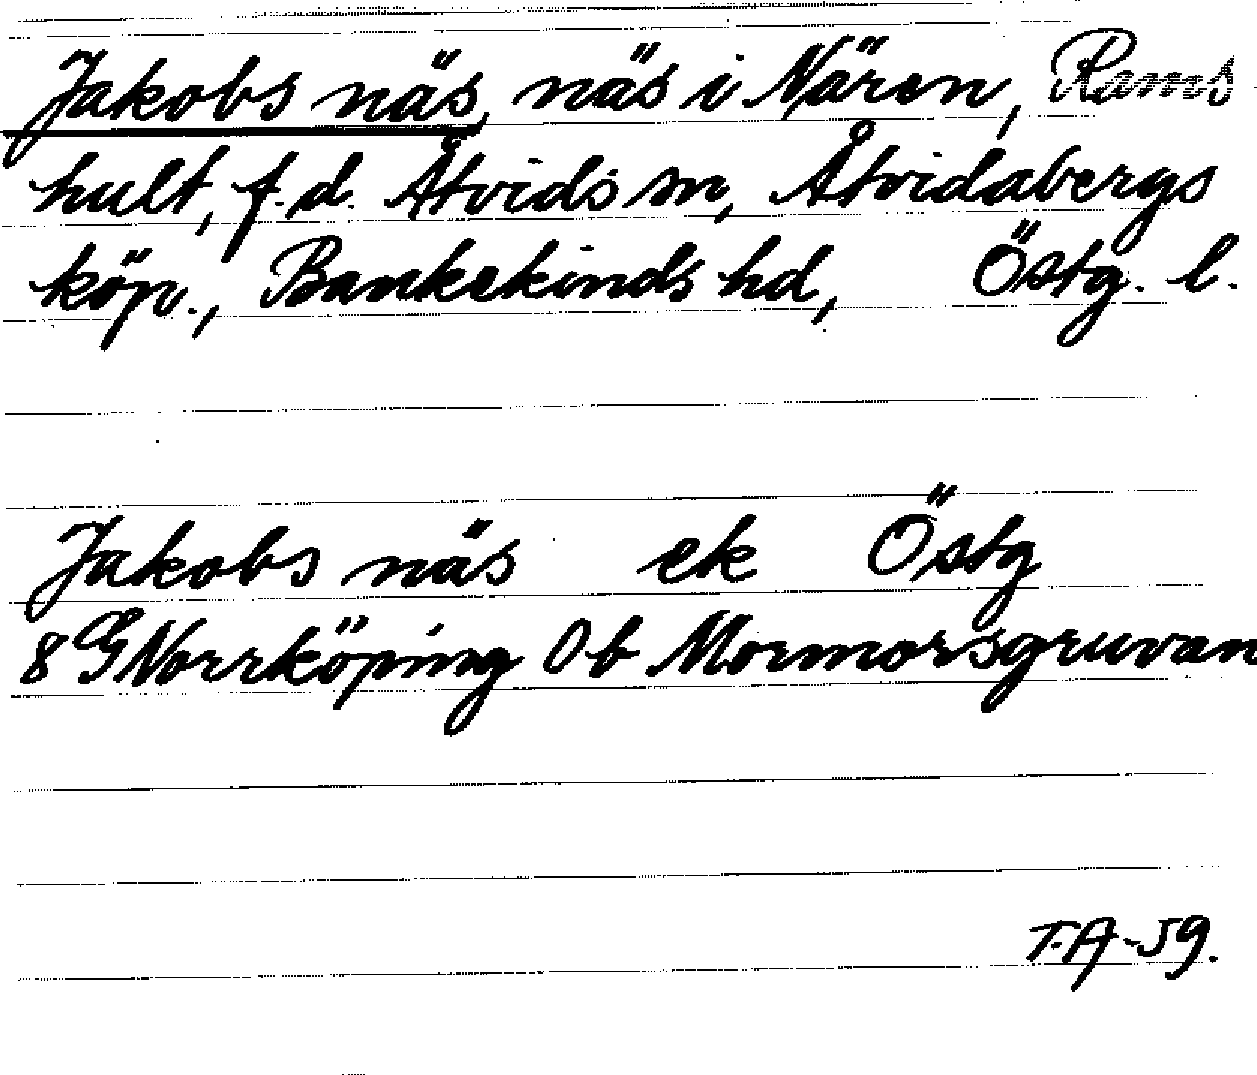 Jakobs näs, näs i Nären, Rams
hult, f.d. Åtvids sn, Åtvidabergs
köp., Bankekinds hd, Östg. l.
Jakobs näs ek Östg
8 G Norrköping 0 b Mormorsgruvan
T.A-59.